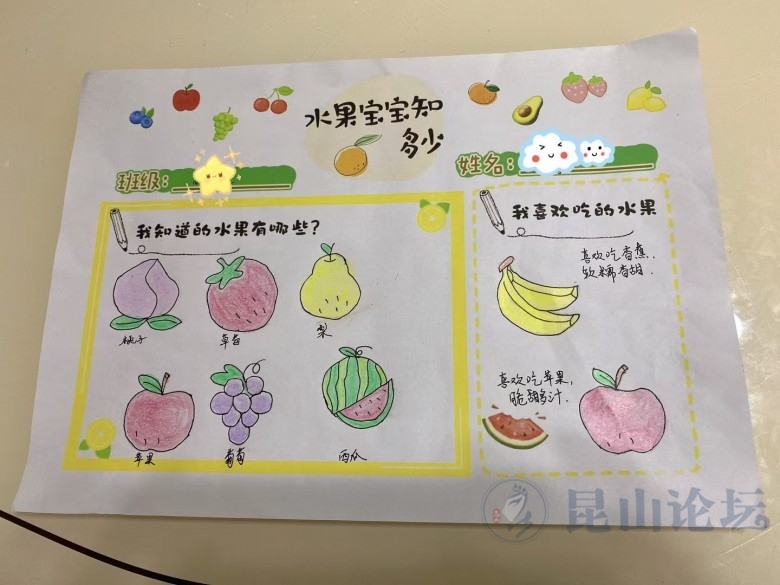 水果宝宝知
多少
班级:
姓名:
我知道的水果有哪些?
桃子
草莓
梨
苹果
葡萄
西瓜
我喜欢吃的水果
喜欢吃香蕉,
软糯香甜.
喜欢吃苹果,
脆甜多汁.
昆山论坛